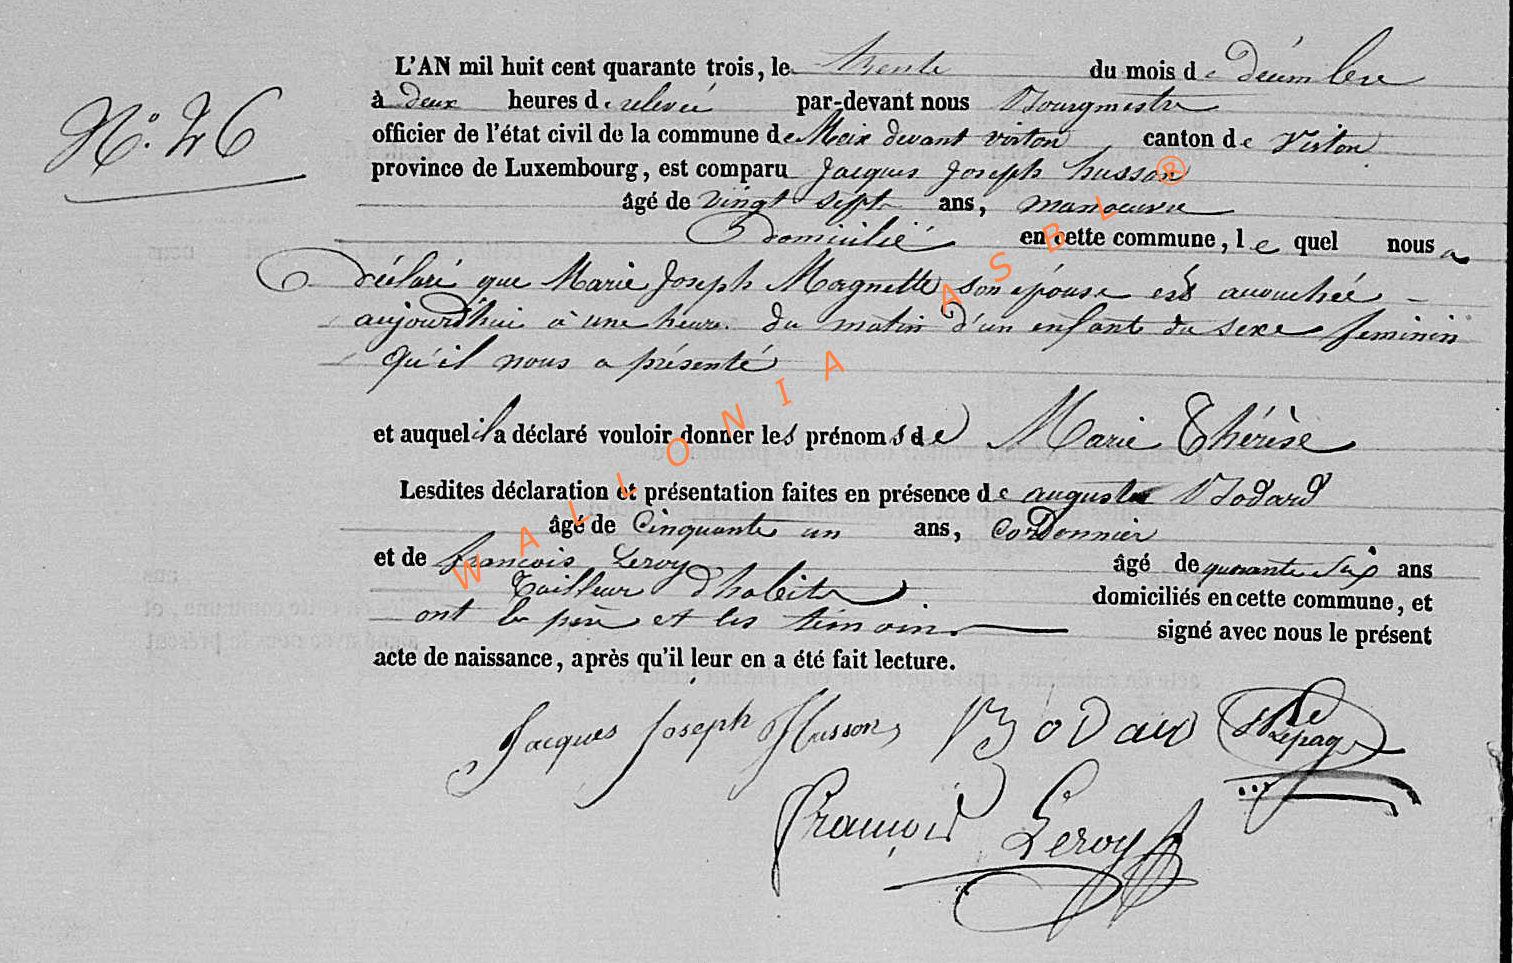 N° 46
L'AN mil huit cent quarante trois, le trente du mois de décembre
à deux heures de relevée par-devant nous Bourgmestre
officier de l'état civil de la commune de Meix devant virton canton de Virton
province de Luxembourg, est comparu Jacques Joseph husson
âgé de vingt sept ans, manoeuvre
Domicilié en cette commune, le quel nous a
déclaré que Marie Joseph Magnette son épouse est accouchée
aujourd'hui à une heure du matin d'un enfant du sexe feminin
qu'il nous a présenté
et auquel il a déclaré vouloir donner les prénoms de Marie Thérèse
Lesdites déclaration et présentation faites en présence de auguste Bodard
âgé de Cinquante un ans, Cordonnier
et de françois Leroy âgé de quarante six ans
Tailleur d'habits domiciliés en cette commune, et
ont le père et les témoins signé avec nous le présent
acte de naissance, après qu'il leur en a été fait lecture.
Jacques Joseph Husson Bodard Lepage
François Leroy
WALLONIA ASBL ®